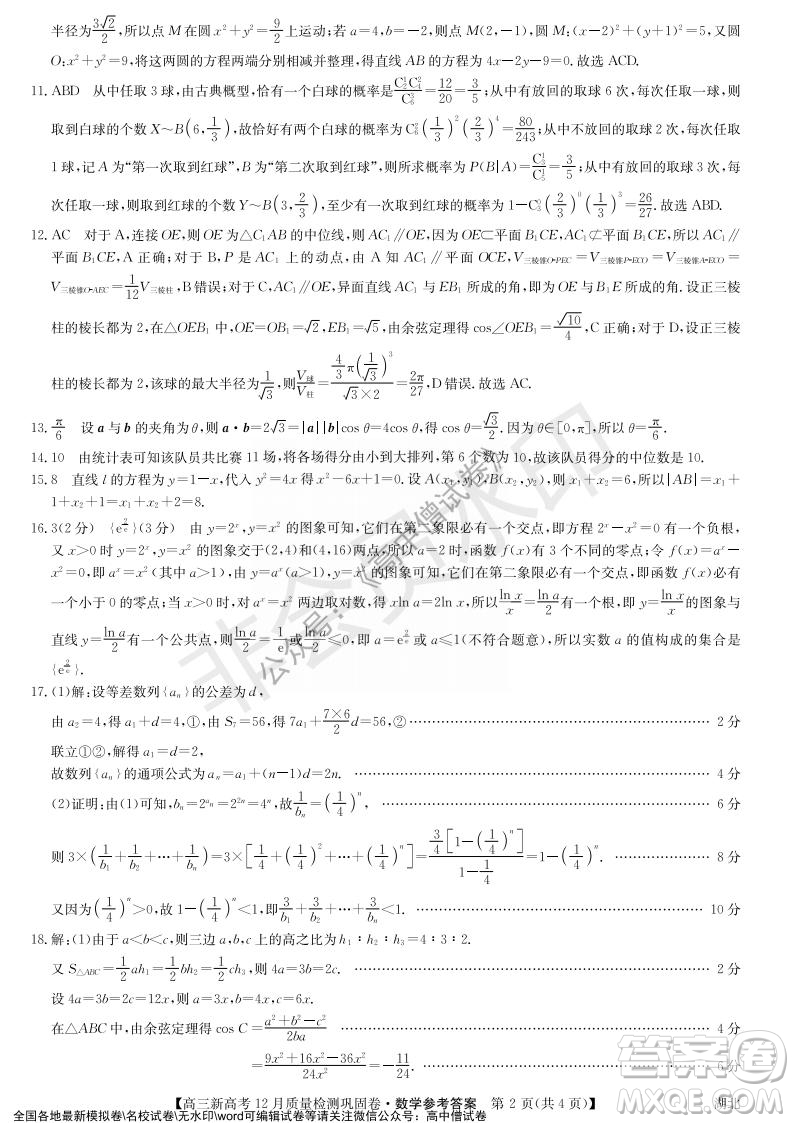 半径为3√2/2,所以点 M 在圆 x²+y²=9/2 上运动;若 a=4,b=-2,则点 M(2,-1),圆 M:(x-2)²+(y+1)²=5,又圆
O:x²+y²=9,将这两圆的方程两端分别相减并整理,得直线 AB 的方程为 4x-2y-9=0.故选 ACD.
11.ABD 从中任取 3 球,由古典概型,恰有一个白球的概率是C¹₂C²₄/C³₆=12/20=3/5;从中有放回的取球 6 次,每次任取一球,则
取到白球的个数 X~B(6,1/3),故恰好有两个白球的概率为 C²₆(1/3)²(2/3)⁴=80/243;从中不放回的取球 2 次,每次任取
1 球,记 A 为“第一次取到红球”,B 为“第二次取到红球”,则所求概率为 P(B|A)=C¹₃/C¹₅=3/5;从中有放回的取球 3 次,每
次任取一球,则取到红球的个数 Y~B(3,2/3),至少有一次取到红球的概率为 1-C⁰₃(2/3)⁰(1/3)³=26/27.故选 ABD.
12.AC 对于 A,连接 OE,则 OE 为△C₁AB 的中位线,则 AC₁∥OE,因为 OE⊂平面 B₁CE,AC₁⊄平面 B₁CE,所以 AC₁∥
平面 B₁CE,A 正确;对于 B,P 是 AC₁ 上的动点,由 A 知 AC₁∥平面 OCE,V三棱锥O-PEC=V三棱锥P-ECO=V三棱锥A-ECO=
V三棱锥O-AEC=1/12V三棱柱,B错误;对于 C,AC₁∥OE,异面直线 AC₁ 与 EB₁ 所成的角,即为 OE 与 B₁E 所成的角.设正三棱
柱的棱长都为 2,在△OEB₁ 中,OE=OB₁=√2,EB₁=√5,由余弦定理得 cos∠OEB₁=√10/4,C 正确;对于 D,设正三棱
柱的棱长都为 2,该球的最大半径为1/√3,则V球/V柱=4/3π(1/√3)³/√3×2=2π/27,D错误.故选 AC.
13.π/6 设 a 与 b 的夹角为 θ,则 a·b=2√3=|a||b|cos θ=4cos θ,得 cos θ=√3/2.因为 θ∈[0,π],所以 θ=π/6.
14.10 由统计表可知该队员共比赛 11 场,将各场得分由小到大排列,第 6 个数为 10,故该队员得分的中位数是 10.
15.8 直线 l 的方程为 y=1-x,代入 y²=4x 得 x²-6x+1=0.设 A(x₁,y₁),B(x₂,y₂),则 x₁+x₂=6,所以|AB|=x₁+
1+x₂+1=x₁+x₂+2=8.
16.3(2 分) {e^(2/e)}(3 分) 由 y=2ˣ,y=x² 的图象可知,它们在第二象限必有一个交点,即方程 2ˣ-x²=0 有一个负根,
又 x>0 时 y=2ˣ,y=x² 的图象交于(2,4)和(4,16)两点,所以函数 f(x)有 3 个不同的零点;令 f(x)=aˣ-
x²=0,即 aˣ=x²(其中 a>1),由 y=aˣ(a>1),y=x² 的图象可知,它们在第二象限必有一个交点,即函数 f(x)必有
一个小于 0 的零点;当 x>0 时,对 aˣ=x² 两边取对数,得 xln a=2ln x,所以ln x/x=ln a/2有一个根,即 y=ln x/x的图象与
直线 y=ln a/2有一个公共点,则ln a/2=1/e或ln a/2≤0,即 a=e^(2/e)或 a≤1(不符合题意),所以实数 a 的值构成的集合是
{e^(2/e)}.
17.(1)解:设等差数列{aₙ}的公差为 d,
由 a₂=4,得 a₁+d=4,①,由 S₇=56,得 7a₁+7×6/2d=56,② ………… 2 分
联立①②,解得 a₁=d=2,
故数列{aₙ}的通项公式为 aₙ=a₁+(n-1)d=2n. ………… 4 分
(2)证明:由(1)可知,bₙ=2^(aₙ)=2²ⁿ=4ⁿ,故1/bₙ=(1/4)ⁿ, ………… 6 分
则 3×(1/b₁+1/b₂+…+1/bₙ)=3×[1/4+(1/4)²+…+(1/4)ⁿ]=3/4[1-(1/4)ⁿ]/1-1/4=1-(1/4)ⁿ. ………… 8 分
又因为(1/4)ⁿ>0,故 1-(1/4)ⁿ<1,即3/b₁+3/b₂+…+3/bₙ<1. ………… 10 分
18.解:(1)由于 a<b<c,则三边 a,b,c 上的高之比为 h₁:h₂:h₃=4:3:2.
又 S△ABC=1/2ah₁=1/2bh₂=1/2ch₃,则 4a=3b=2c. ………… 2 分
设 4a=3b=2c=12x,则 a=3x,b=4x,c=6x.
在△ABC 中,由余弦定理得 cos C=a²+b²-c²/2ba ………… 4 分
=9x²+16x²-36x²/24x²=-11/24. ………… 6 分
【高三新高考 12 月质量检测巩固卷·数学参考答案 第 2 页(共 4 页)】 湖北
全国各地最新模拟卷\名校试卷\无水印\word可编辑试卷等请关注微信公众号:高中僧试卷
非会员水印
公众号:《高中僧试卷》
作业帮